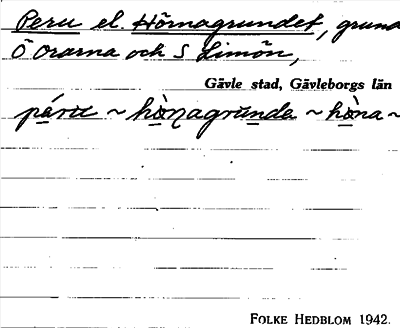 Peru el. Hörnagrundet, grund
Ö Orarna och S Limön,
Gävle stad, Gävleborgs län
~ ~
FOLKE HEDBLOM 1942.